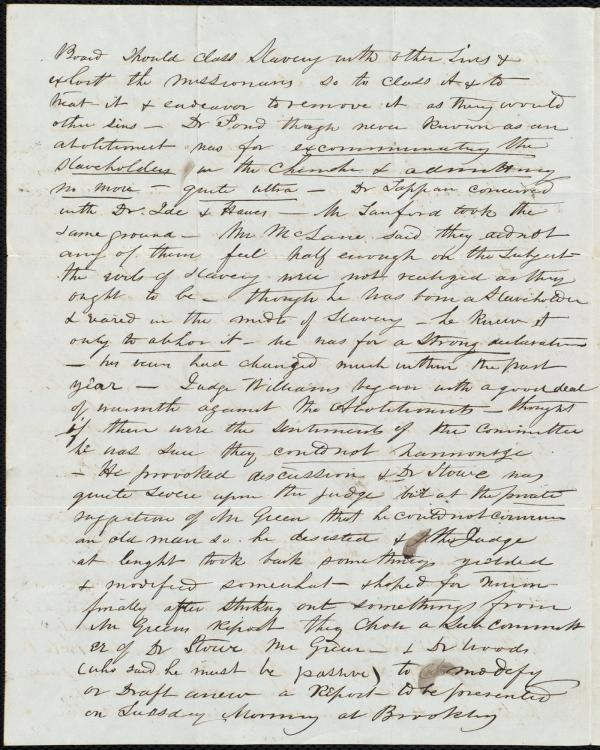 Board should class Slavery with other Sins &
exhort the missionaries so to class it & to
treat it & endeavor to remove it as they would
other sins — Dr Pond though never known as an
abolitionist was for excommunicating the
Slaveholders in the Cherokee & admitting
no more — quite ultra — Dr Tappan concurred
with Dr. Ide & Hawes — Mr Sanford took the
same ground — Mr McLane said they did not
any of them feel half enough on the subject
the evils of slavery were not realized as they
ought to be — though he was born a Slaveholder
& reared in the midst of Slavery — he knew it
only to abhor it — he was for a Strong declaration
— his views had changed much within the past
year — Judge Williams began with a good deal
of warmth against the Abolitionists — thought
if these were the Sentiments of the Committee
he was sure they could not harmonize
— He provoked discussion & Dr Stowe was
quite severe upon the Judge but at the private
suggestion of Mr Green that he could not convince
an old man so he desisted & the Judge
at lenght took back some things yielded
& modified somewhat & hoped for Union
finally after striking out somethings from
Mr Greens report they chose a Sub committ
ee of Dr Stowe Mr Green — & Dr Woods
(who said he must be passive) to modify
or Draft anew a Report — to be presented
on Tuesday Morning at Brooklyn